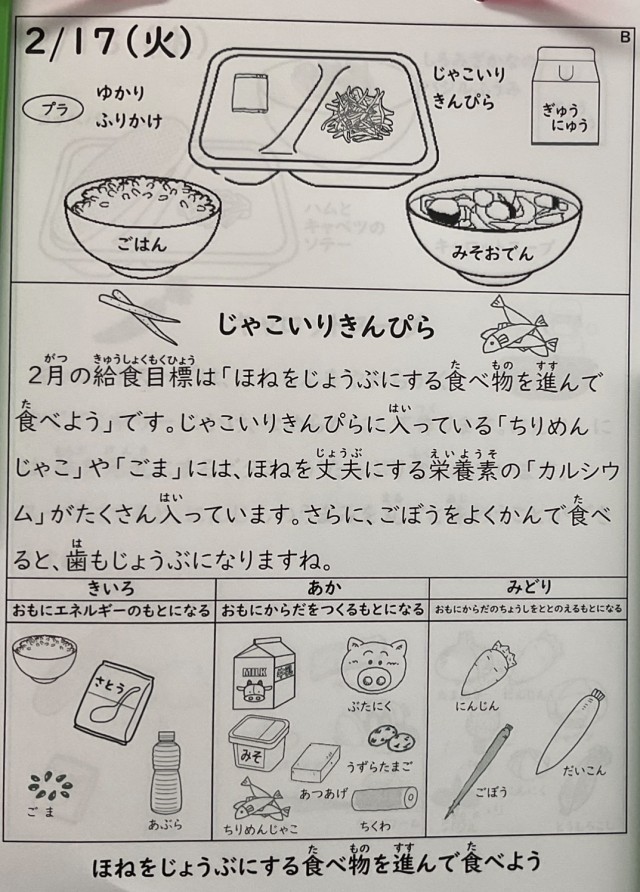 2/17(火)
B
プラ
ゆかり
ふりかけ
じゃこいり
きんぴら
ぎゅう
にゅう
ごはん
みそおでん
じゃこいりきんぴら
2月の給食目標は「ほねをじょうぶにする食べ物を進んで
食べよう」です。じゃこいりきんぴらに入っている「ちりめん
じゃこ」や「ごま」には、ほねを丈夫にする栄養素の「カルシウ
ム」がたくさん入っています。さらに、ごぼうをよくかんで食べ
ると、歯もじょうぶになりますね。
きいろ
おもにエネルギーのもとになる
さとう
ごま
あぶら
あか
おもにからだをつくるもとになる
MILK
ぶたにく
みそ
うずらたまご
あつあげ
ちりめんじゃこ
ちくわ
みどり
おもにからだのちょうしをととのえるもとになる
にんじん
だいこん
ごぼう
ほねをじょうぶにする食べ物を進んで食べよう